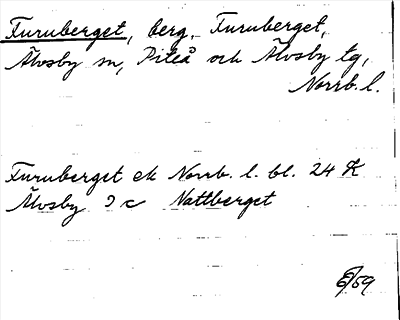 Furuberget, berg, Furuberget,
Älvsby sn, Piteå och Älvsby tg,
Norrb. l.
Furuberget ek Norrb. l. bl. 24 K
Älvsby 9 c Nattberget
6/59